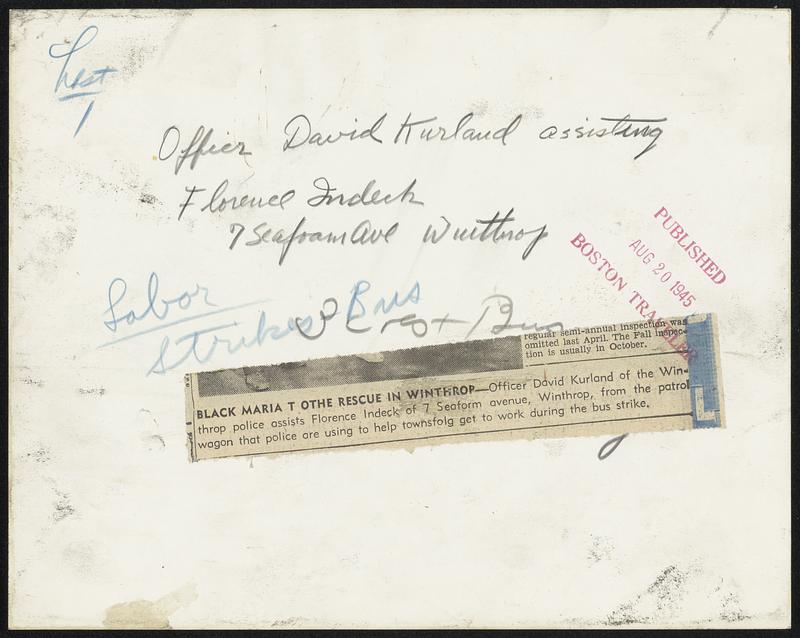 1
Officer David Kurland assisting
Florence Indeck
7 Seafoam Ave Winthrop
PUBLISHED
AUG 20 1945
BOSTON TRAVELER
Labor
Strikes Bus
regular semi-annual inspection was
omitted last April. The Fall inspec-
tion is usually in October.
BLACK MARIA T OTHE RESCUE IN WINTHROP—Officer David Kurland of the Win-
throp police assists Florence Indeck of 7 Seaform avenue, Winthrop, from the patrol
wagon that police are using to help townsfolg get to work during the bus strike.